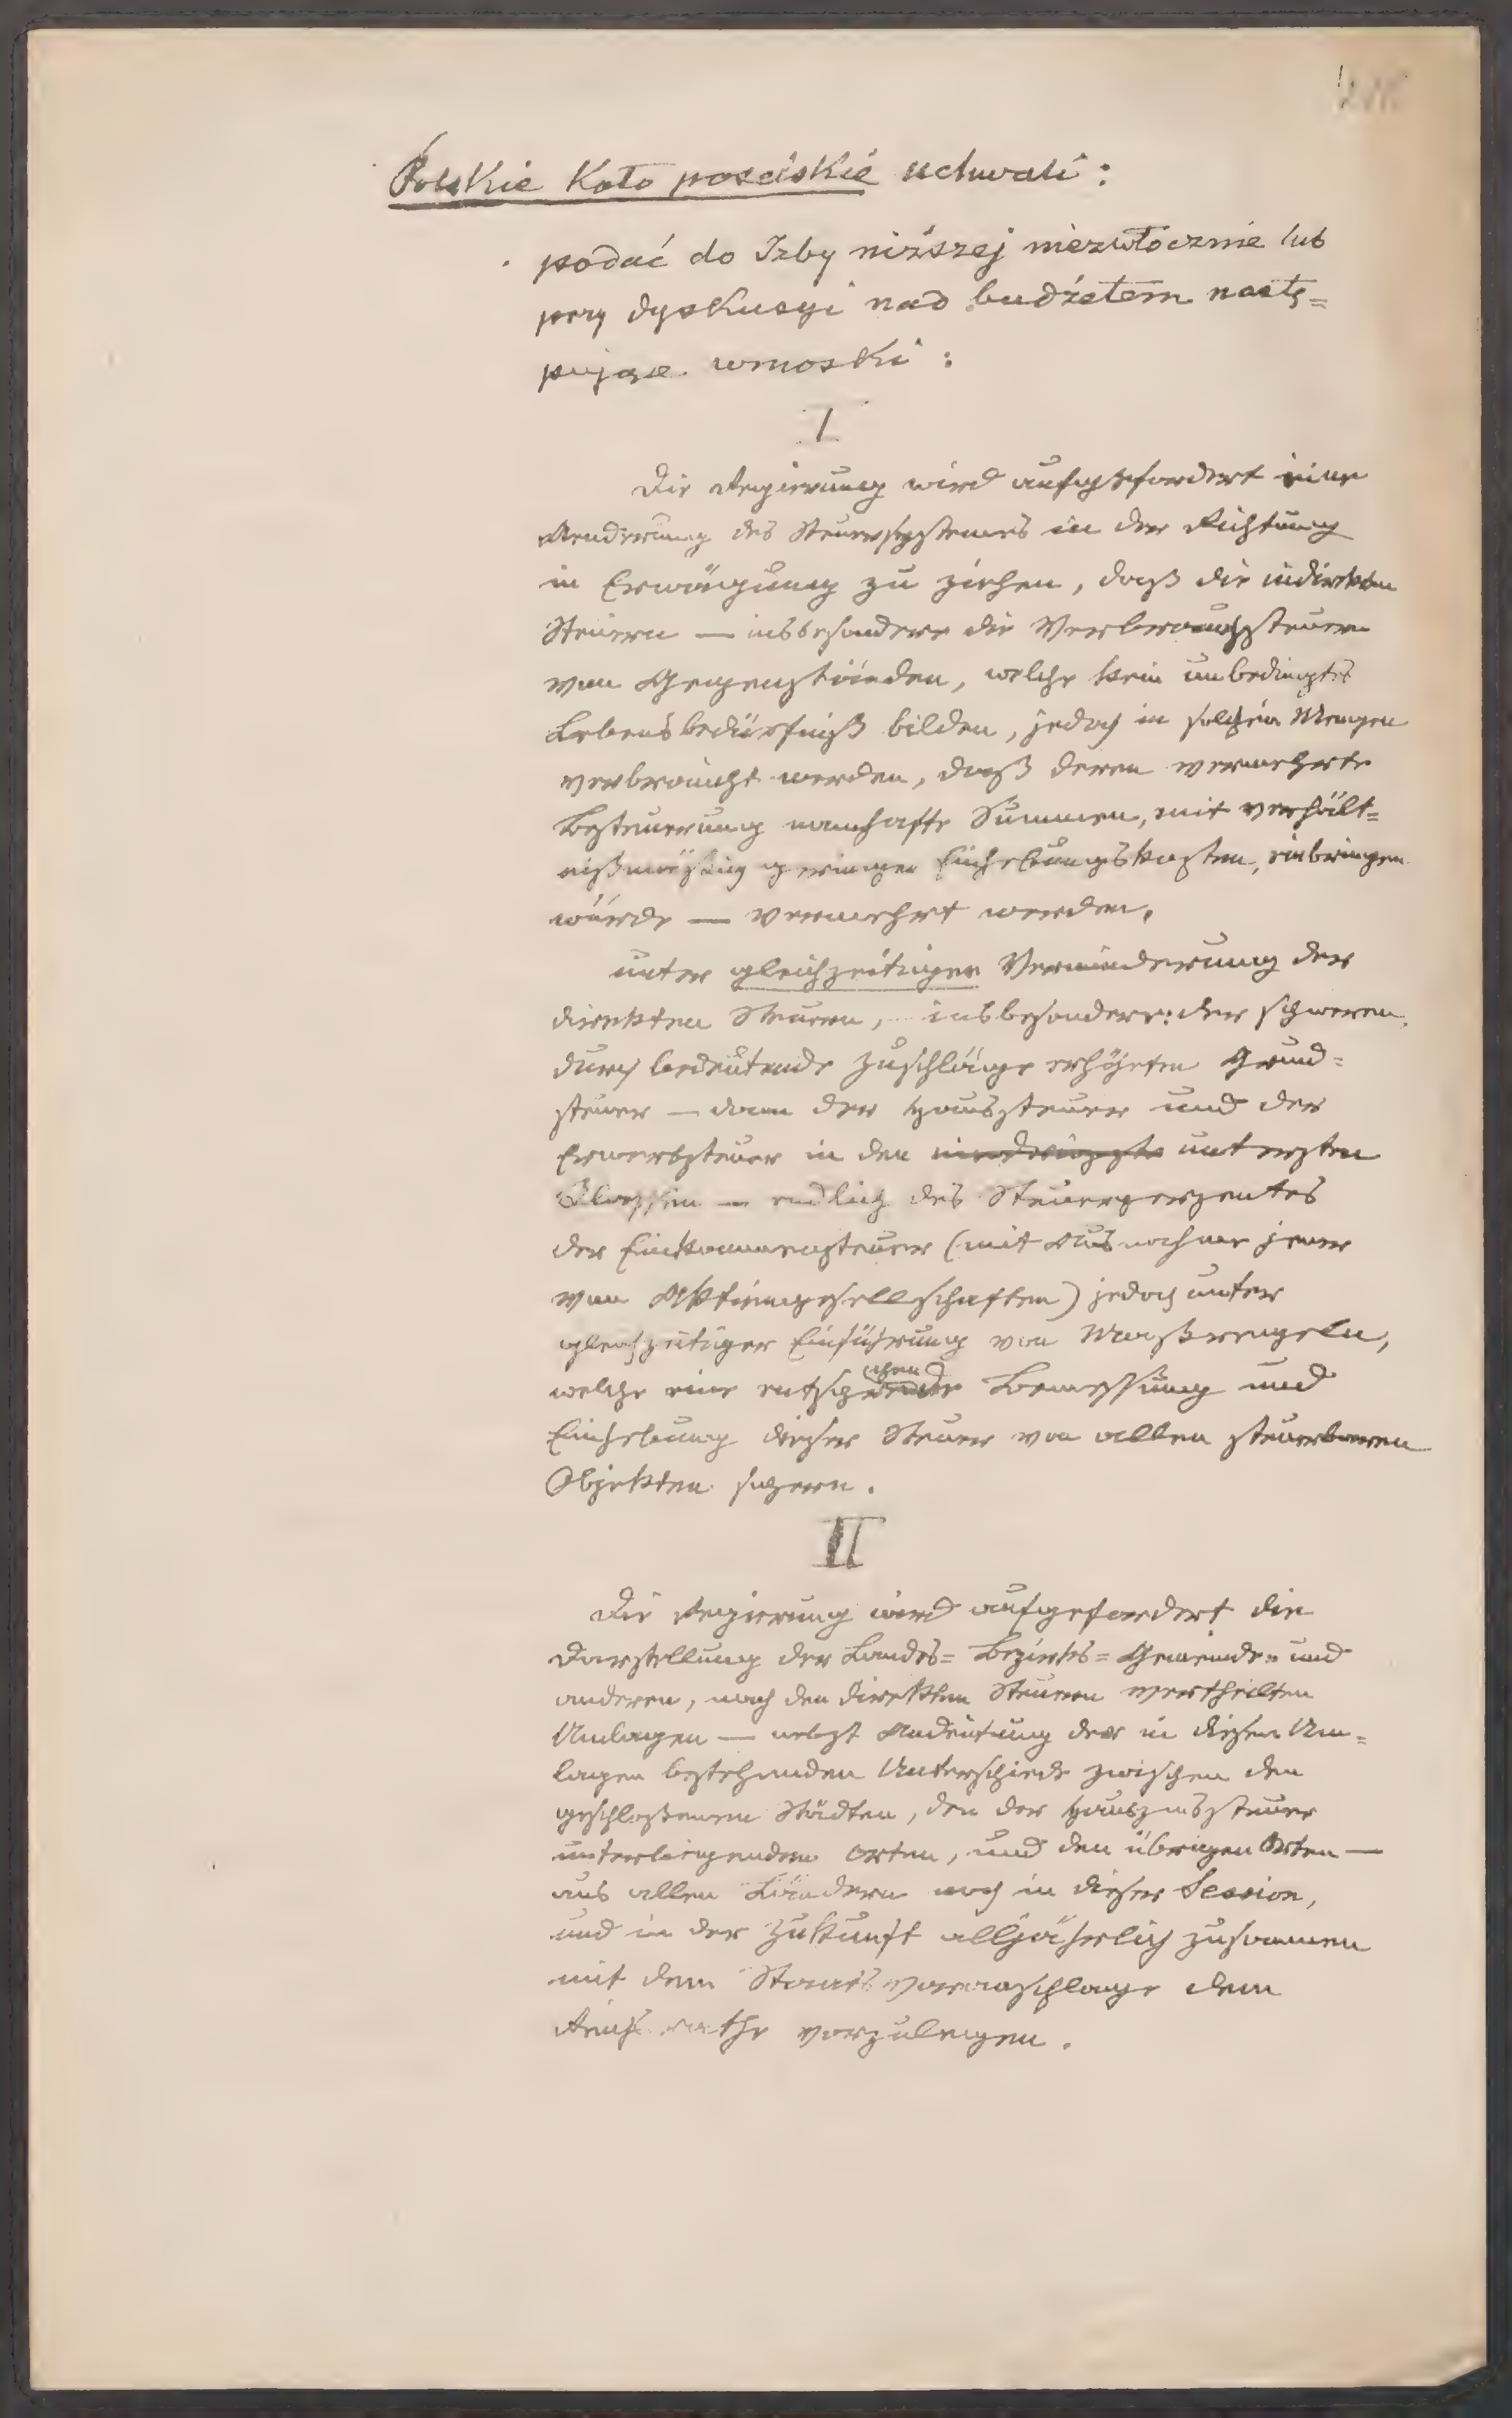 Polskie Koło poselskie uchwali:
podać do Izby niższej niezwłocznie lub
przy dyskusyi nad budżetem nastę=
pujące wnioski:
I
Die Regierung wird aufgefordert eine
Aenderung des Steuersystemes in der Richtung
in Erwägung zu ziehen, daß die indirekten
Steuern — insbesondere die Verbrauchssteuern
von Gegenständen, welche kein unbedingtes
Lebensbedürfniß bilden, jedoch in solchen Mengen
verbraucht werden, daß deren vermehrte
Besteuerung namhafte Summen, mit verhält=
nißmäßig geringen Einhebungskosten, einbringen
würde — vermehrt werden,
unter gleichzeitiger Verminderung der
direkten Steuern, insbesondere: der schweren,
durch bedeutende Zuschläge erhöhten Grund=
steuer — dann der Haussteuer und der
Erwerbsteuer in den untersten
Classen — endlich des Steuerperzentes
der Einkommensteuer (mit Ausnahme jener
von Aktiengesellschaften) jedoch unter
gleichzeitiger Einführung von Maßregeln,
welche eine Bemessung und
Einhebung dieser Steuer von allen steuerbaren
Objekten sichern.
II
Die Regierung wird aufgefordert die
Darstellung der Landes= Bezirks= Gemeinde= und
anderen, nach den direkten Steuern vertheilten
Umlagen — nebst Andeutung der in diesen Um=
lagen bestehenden Unterschiede zwischen den
geschloßenen Städten, den der Hauszinssteuer
unterliegenden Orten, und den übrigen Orten —
aus allen Ländern noch in dieser Session,
und in der Zukunft alljährlich zusammen
mit dem Staatsvoranschlage dem
Reichsrathe vorzulegen.